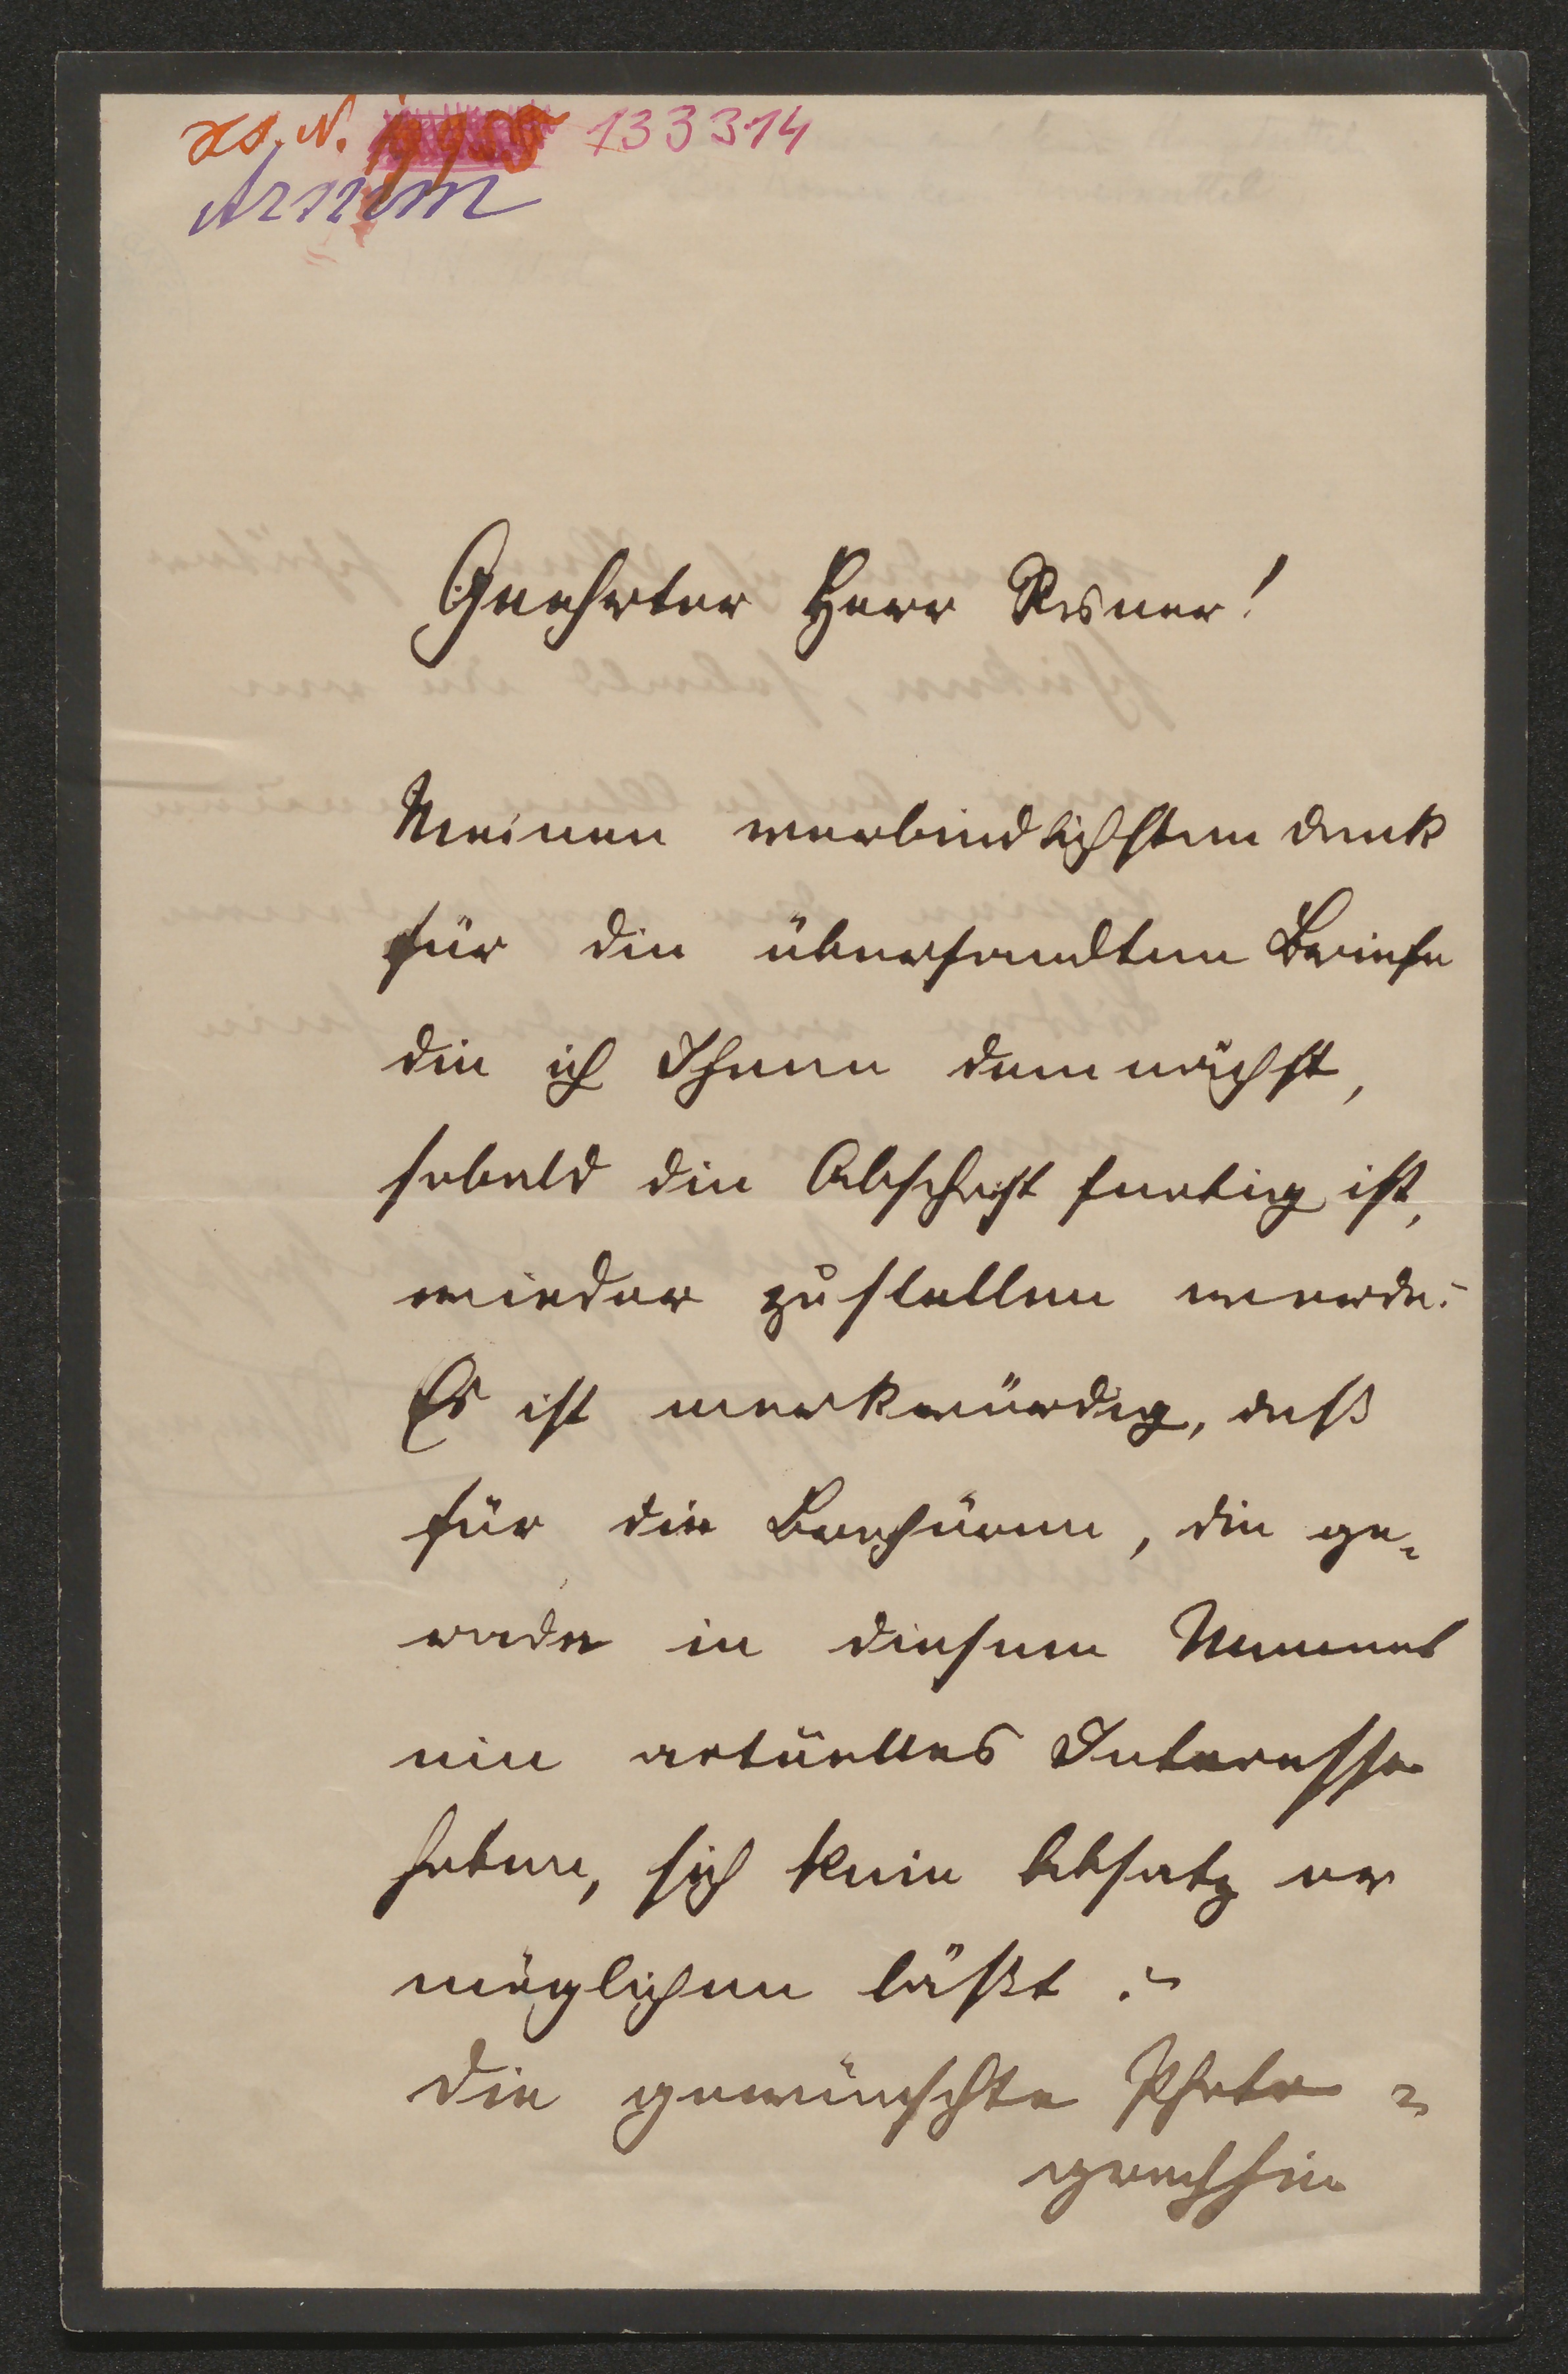 H.I.N. 133314
Arnim
Geehrter Herr Posner!
Meinen verbindlichsten Dank
für die übersandten Briefe
die ich Ihnen demnächst,
sobald die Abschrift fertig ist,
wieder zustellen werde.-
Es ist merkwürdig, daß
für die Brochüren, die ge-
rade in diesem Moment
ein actuelles Interesse
haben, sich kein Absatz er
möglichen läßt.-
Die gewünschte Photo-
graphie